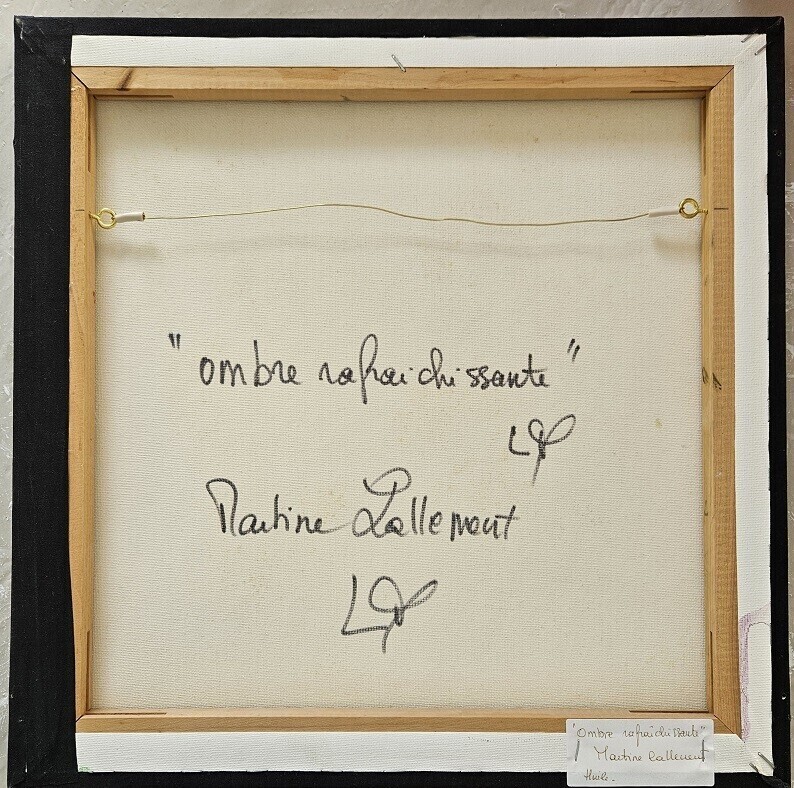 "ombre rafraichissante"
Martine Lallemant
"Ombre rafraîchissante"
Martine Lallemant
Huile.